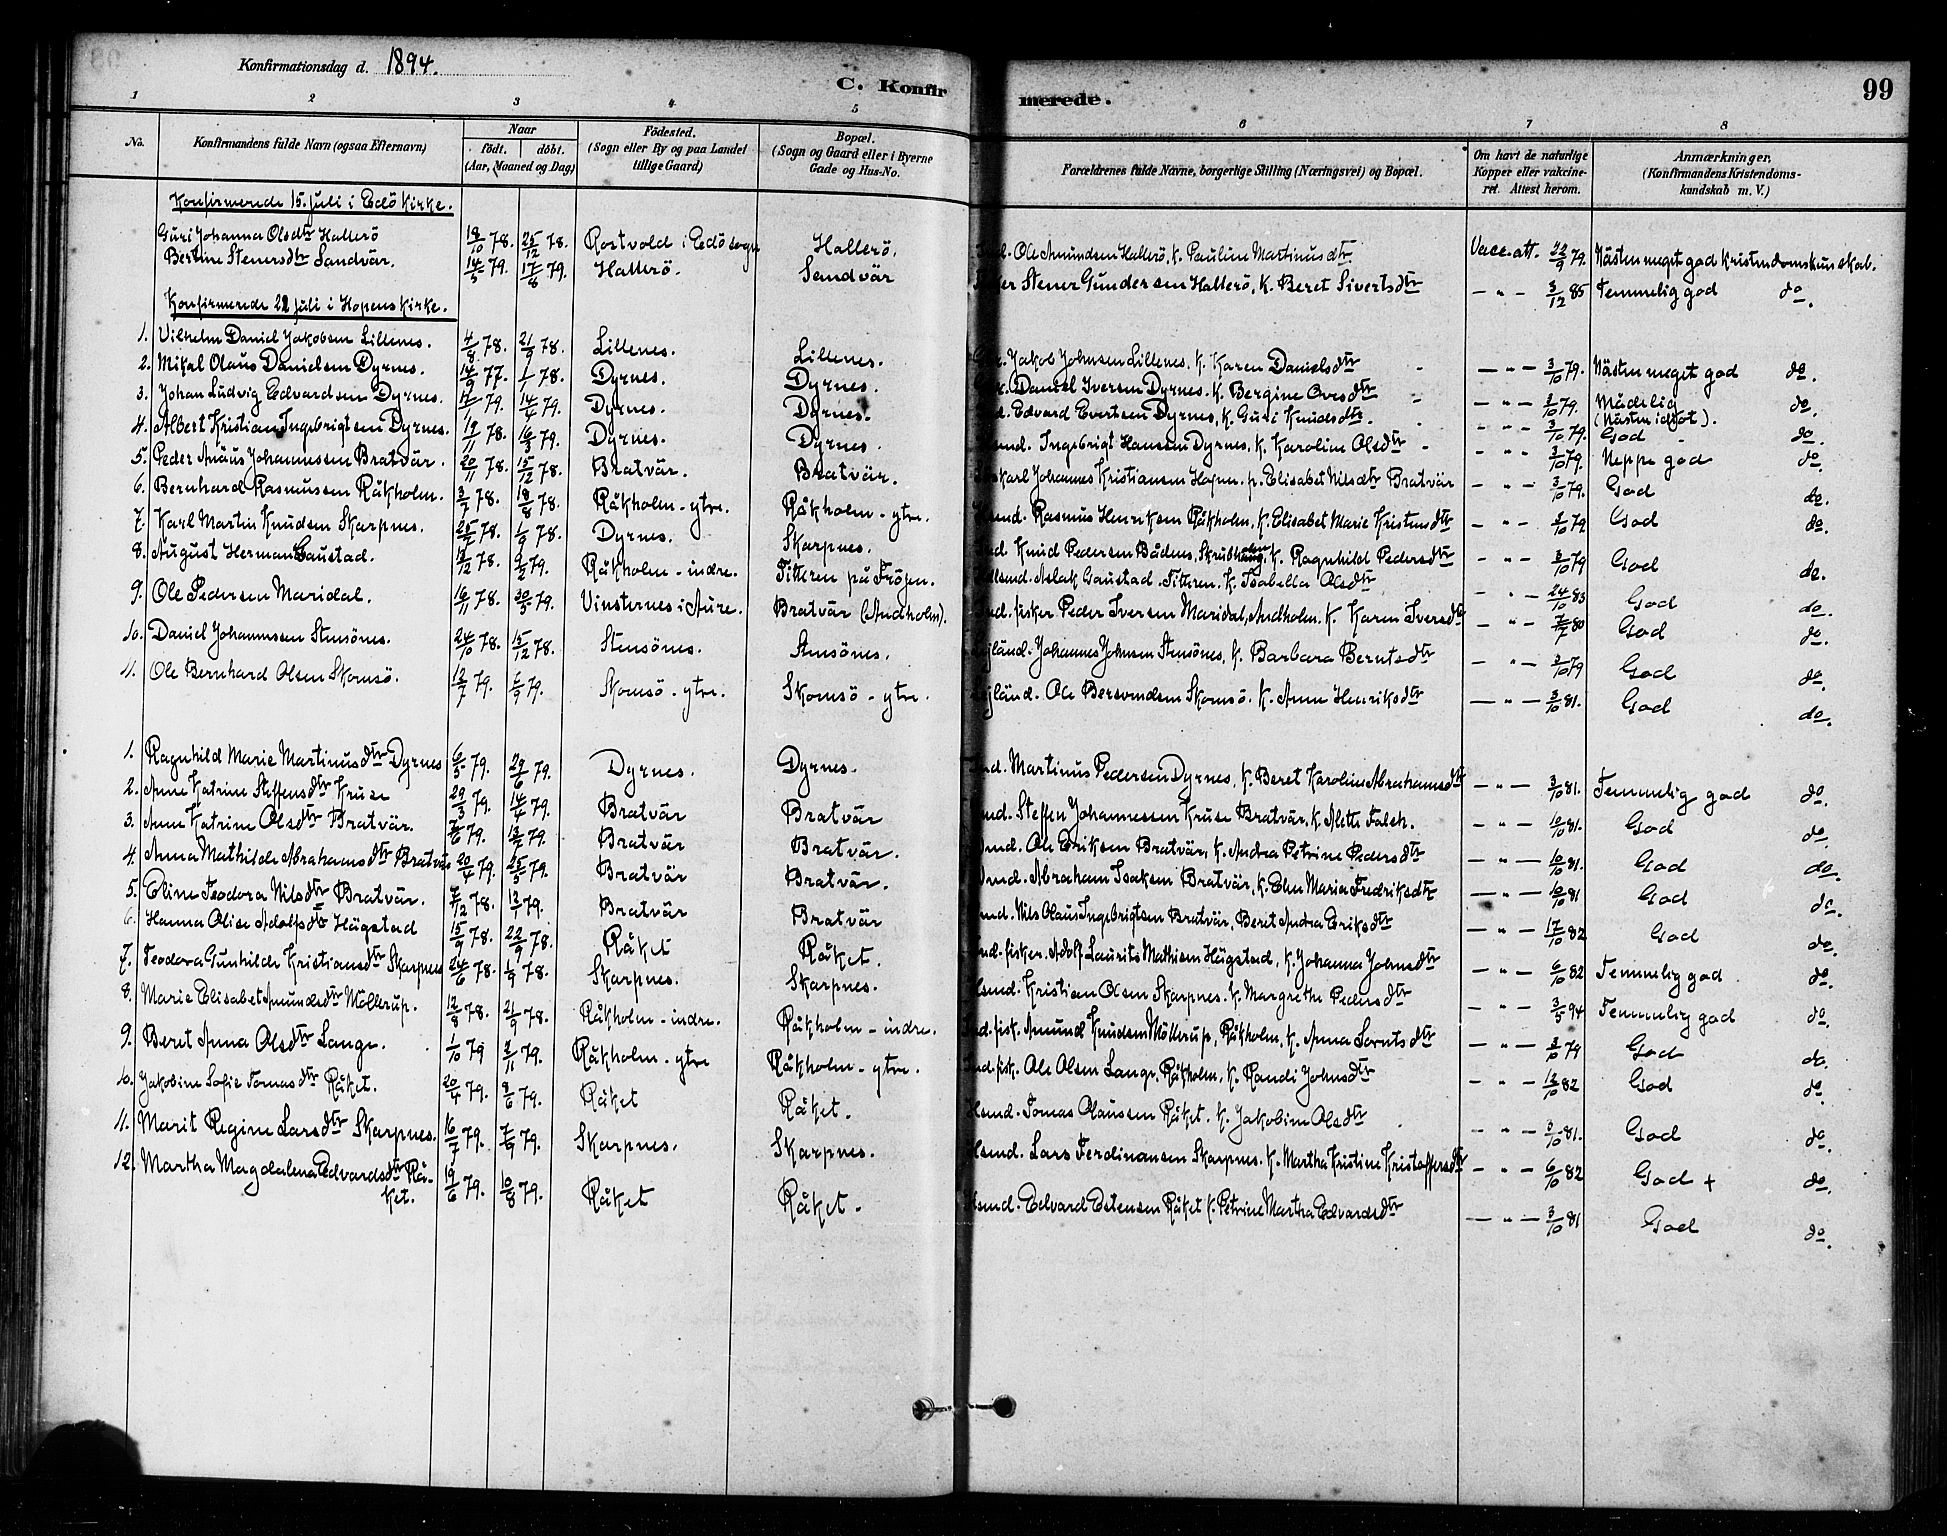 Konfirmationsdag d. 1894.
C. Konfirmerede.
99
1 2 3 4 5 6 7 8
No. Konfirmandens fulde Navn (ogsaa Efternavn) Naar födt. döbt. (Aar, Maaned og Dag) Födested. (Sogn eller By og paa Landet tillige Gaard) Bopæl. (Sogn og Gaard eller i Byerne Gade og Hus-No. Forældrenes fulde Navne, borgerlige Stilling (Næringsvei) og Bopæl. Om havt de naturlige Kopper eller vakcineret. Attest herom. Anmærkninger, (Konfirmandens Kristendomskundskab m. V.)
Konfirmerede 15. juli i Edö Kirke.
Guri Johanna Olsdtr Hallerö 18/10 78. 25/12 78. Rostvold i Edö sogn Hallerö. Ole Amundsen Hallerö, K. Pauline Martinusdtr Vacc. att. 22/9 79. Nästen meget god Kristendomskundskab.
Bertine Stenersdtr Sandvär. 14/5 79. 17/8 79. Hallerö. Sandvär Stener Gundersen Hallerö, K. Beret Sivertsdtr — " — 3/12 85 Temmelig god do.
Konfirmerede 22 juli i Hopens Kirke.
1. Vilhelm Daniel Jakobsen Lillenes. 4/8 78. 21/9 78. Lillenes. Lillenes. Jakob Johnsen Lillenes. K. Karen Danielsdtr — " — 3/10 79. Nästen meget god do.
2. Mikal Olaus Danielsen Dyrnes. 14/9 77. 1/1 78. Dyrnes. Dyrnes. Daniel Iversen Dyrnes. K. Bergine Ovesdtr — " — 3/10 79. Mådelig (Nästen idiot). do.
3. Johan Ludvig Edvardsen Dyrnes. 79. 14/4 79. Dyrnes. Dyrnes. Edvard Evertsen Dyrnes, K. Guri Knudsdtr. — " — 3/10 79. God do.
4. Albert Kristian Ingebrigtsen Dyrnes. 19/11 78. 16/3 79. Dyrnes. Dyrnes. Ingebrigt Hansen Dyrnes. K. Karoline Olsdtr — " — 3/10 79. Neppe god do.
5. Peder Anäus Johannessen Bratvär. 20/11 78. 15/12 78. Bratvär. Bratvär. Johannes Kristiansen p. Elisabet Nilsdtr Bratvär — " — 3/10 79. God do.
6. Bernhard Rasmussen Råkholm. 3/7 78. 18/8 78. Råkholm - ytre. Råkholm - ytre. Rasmus Henriksen Råkholm. K. Elisabet Marie Kristensdtr — " — 3/10 79 God do.
7. Karl Martin Knudsen Skarpnes. 78. 1/9 78. Dyrnes. Skarpnes. Knud Pedersen K. Ragnhild Pedersdtr — " — 3/10 79 God do.
8. August Herman Gaustad. 78. 9/2 79. Råkholm - indre. Titteren på Fröjen. Aslak Gaustad. Titteren. K. Isabella Olsdtr — " — 24/10 83 God do.
9. Ole Pedersen Maridal. 16/11 78. 30/5 79. Vinsternes i Aure. Bratvär (Andholm). fisker Peder Iversen Maridal, Andholm. K. Karen Iversdtr — " — 80 God do.
10. Daniel Johannessen Stensönes. 24/10 78. 15/12 78. Stensönes. Stensönes. Johannes Johnsen Stensönes, K. Barbara Berntsdtr — " — 3/10 79 God do.
11. Ole Bernhard Olsen Skomsö. 13/7 79. 79. Skomsö - ytre. Skomsö - ytre. Ole Bersvendsen Skomsö. K. Anne Henriksdtr — " — 3/10 81. God do.
1. Ragnhild Marie Martinusdtr Dyrnes 6/5 79. 29/6 79. Dyrnes. Dyrnes. Martinus Pedersen Dyrnes. K. Beret Karoline Abrahamsdtr — " — 3/10 81. Temmelig god do.
2. Anne Katrine Steffensdtr Kruse 29/3 79. 14/4 79. Bratvär Bratvär Steffen Johannessen Kruse Bratvär, K. Alette Falch. — " — 10/10 81. God do.
3. Anne Katrine Olsdtr Bratvär. 79. 79. Bratvär Bratvär. Ole Eriksen Bratvär, K. Andrea Petrine Pedersdtr — " — 10/10 81. God do.
4. Anna Mathilde Abrahamsdtr Bratvär 20/4 79. 25/5 79. Bratvär Bratvär. Abraham Isaksen Bratvär, K. Elen Maria Fredriksdtr — " — 10/10 81 God do.
5. Eline Teodora Nilsdtr Bratvär. 78. 13/1 79. Bratvär Bratvär Nils Olaus Ingebrigtsen Bratvär, Berit Andrea Eriksdtr — " — 17/10 82 God do.
6. Hanna Olise Adolfsdtr Hägstad 15/9 78. 22/9 78. Råket Råket. fisker. Adolf Laurits Mathisen Hägstad, K. Johanna Johnsdtr — " — 6/10 82 Temmelig god do.
7. Teodora Gunhilde Kristiansdtr Skarpnes 24/6 78. 1/9 78. Skarpnes. Skarpnes. Kristian Olsen Skarpnes. K. Margrethe Pedersdtr — " — 3/5 94 Temmelig god do.
8. Marie Elisabet Amundsdtr Möllerup. 12/8 78. 21/9 78. Råkholm - indre. Råkholm - indre. fisk. Amund Knudsen Möllerup, Råkholm, K. Anna Lorntsdtr — " — 3/10 79 God do.
9. Beret Anna Olsdtr Lange. 1/10 79 2/11 79. Råkholm - ytre Råkholm - ytre. fisk. Ole Olsen Lange, Råkholm, K. Randi Johnsdtr — " — 13/10 82 God do.
10. Jakobine Sofie Tomasdtr Råket. 20/4 79. 8/6 79. Råket Råket. Tomas Olaussen Råket, K. Jakobine Olsdtr — " — 3/10 81. God do.
11. Marit Regine Larsdtr Skarpnes. 16/7 79. 7/9 79. Skarpnes. Skarpnes. Lars Ferdinansen Skarpnes. K. Martha Kristine Kristoffersdtr — " — 6/10 82 God + do.
12. Martha Magdalena Edvardsdtr Råket. 19/6 79. 10/8 79. Råket Råket. Edvard Estensen Råket K. Petrine Martha Edvardsdtr — " — 3/10 81 God do.